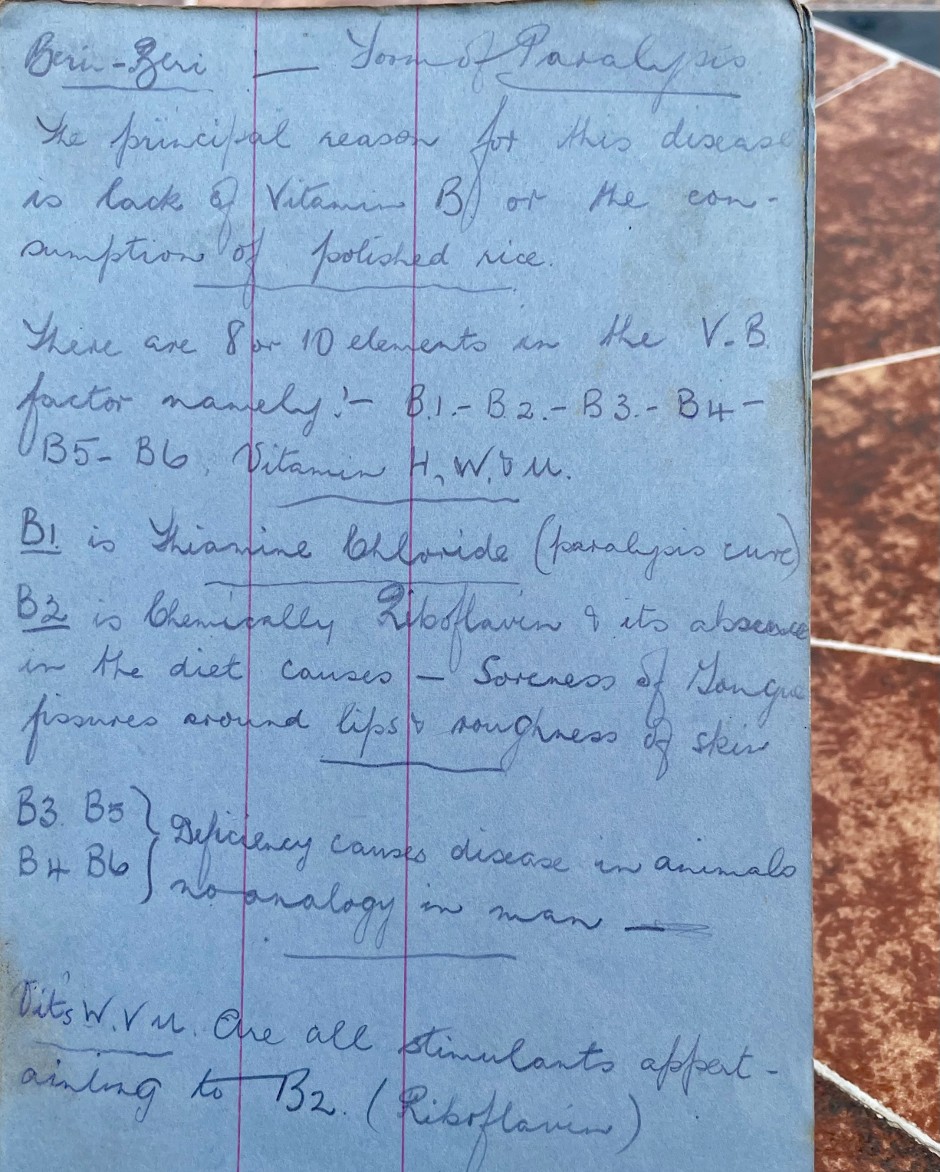 Beri-Beri — Form of Paralysis
The principal reason for this disease
is lack of Vitamin B. or the con-
sumption of polished rice.
There are 8 or 10 elements in the V-B.
factor namely:- B.1.- B.2.- B3.- B4-
B5- B6, Vitamin H, W, & U.
B1. is Thiamine Chloride (paralysis cure)
B2 is Chemically Riboflavin & its absence
in the diet causes — Soreness of Tongue
fissures around lips & roughness of skin
B3. B5 } Deficiency causes disease in animals
B4 B6 } no analogy in man —
Vit's W. V U. Are all stimulants appert-
ainting to B2. (Riboflavin)